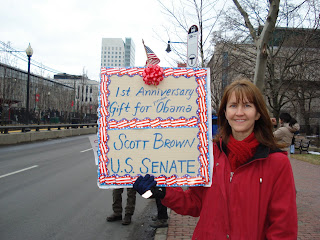 1st Anniversary
Gift for Obama
SCOTT BROWN
U.S. SENATE